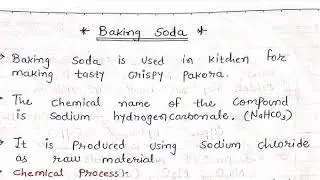 * Baking Soda *
→ Baking Soda is used in kitchen for
making tasty crispy pakora.
→ The chemical name of the compound
is Sodium - hydrogencarbonate. (NaHCO3)
→ It is Produced using Sodium chloride
as raw material
→ Chemical Process: